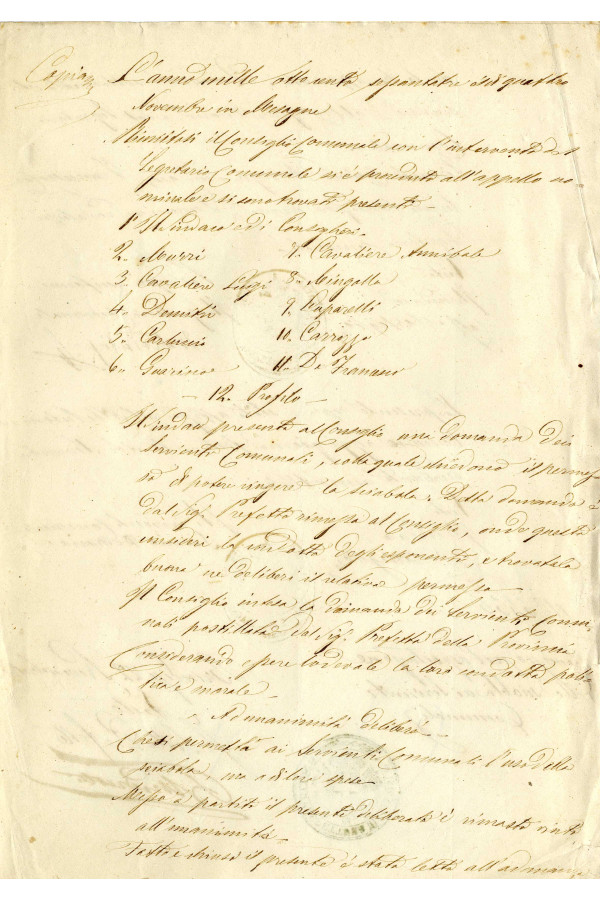 Copia
L'anno mille otto cento sepantatre il dì quattro
Novembre in Mesagne
Riunitosi il Consiglio Comunale con l'intervento del
Segretario Comunale si è proceduto all'appello no
minale e si sono trovati presenti
1° Il Sindaco ed i Consiglieri
2. Murri 7. Cavaliere Annibale
3. Cavaliere Luigi 8. Mingolla
4. Demitri 9. Caparelli
5. Carluccio 10. Carrozzo
6. Guarino 11. De Francesco
12. Profilo
Il Sindaco presenta al Consiglio una domanda dei
Servienti Comunali, colla quale chiedono il permes
so di potere cingere la sciabola. Detta domanda è
dal Sig. Prefetto rimessa al Consiglio, onde questo
consideri la condotta degli esponenti, e trovatala
buona ne deliberi il relativo permesso
Il Consiglio intesa la domanda dei Servienti Comu
nali postillata dal Sig. Prefetto della Provincia
Considerando essere lodevole la loro condotta pub
lica e morale
Ad unanimità delibera
Che si permetta ai Servienti Comunali l'uso della
sciabola, ma a di loro spese
Messo a partito il presente deliberato è rimasto vinto
all'unanimità
Fatto e chiuso il presente è stato letto all'adunanza